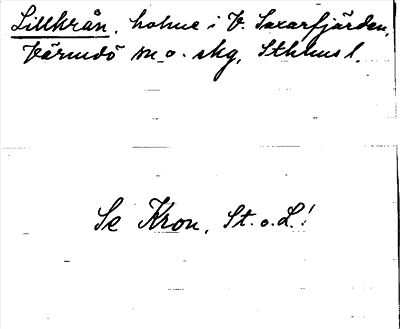 Lillkrån, holme i V. Saxarfjärden,
Värmdö sn o. skg, Sthlms l.
Se Kron, St. o. L!